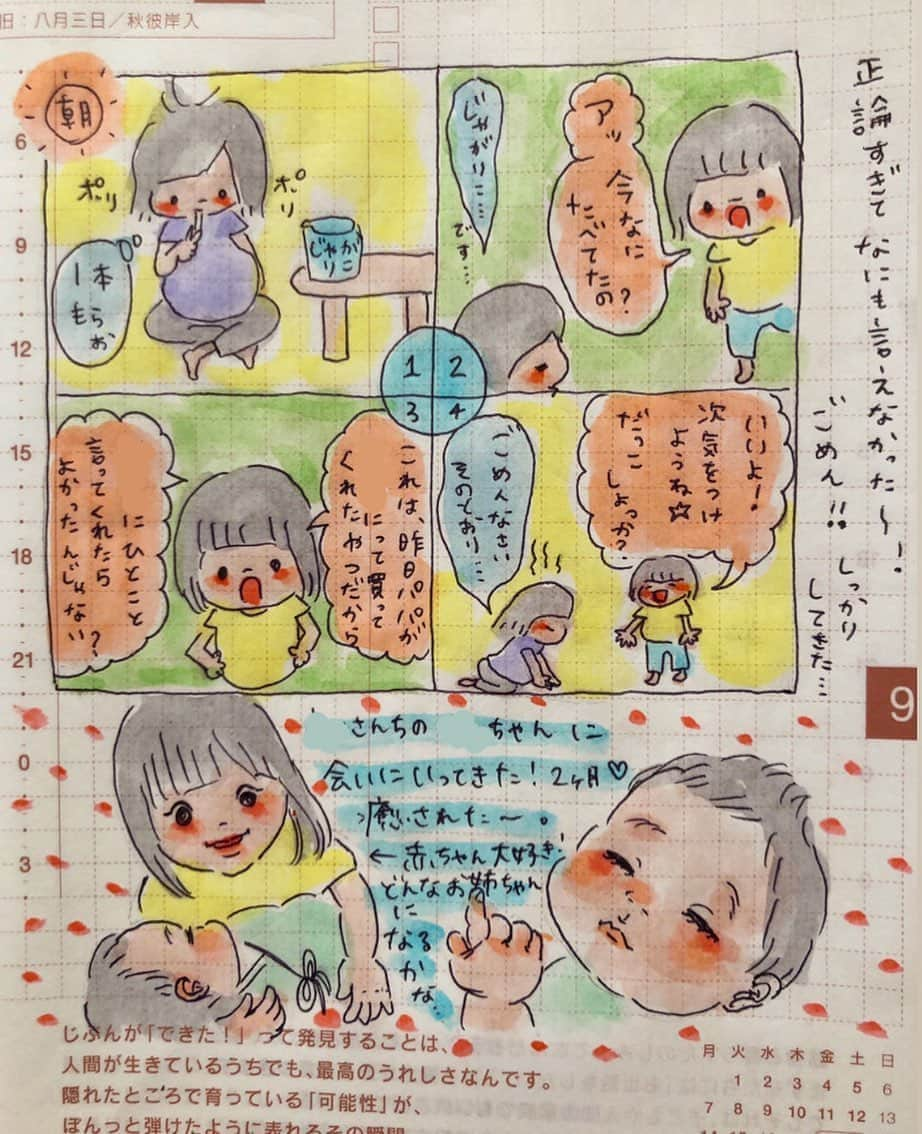 旧：八月三日／秋彼岸入
朝
ポリ
ポリ
じゃがりこ
1本
もらお
アッ
今なに
たべてたの？
じゃがりこ……です…
1
2
3
4
これは、昨日パパが
にって買って
くれたやつだから
にひとこと
言ってくれたら
よかったんじゃない？
いいよ！
次気をつけ
ようね☆
だっこ
しよっか？
ごめんなさい
そのとおり…
正論すぎてなにも言えなかった〜！
ごめん!!
しっかり
してきた…
6
9
12
15
18
21
0
3
9
さんちの ちゃんに
会いにいってきた！2ヶ月♡
癒された〜。
←赤ちゃん大好き
どんなお姉ちゃん
に
なるかな
じぶんが「できた！」って発見することは、
人間が生きているうちでも、最高のうれしさなんです。
隠れたところで育っている「可能性」が、
ぽんっと弾けたように表れるその瞬間
月 火 水 木 金 土 日
1 2 3 4 5 6
7 8 9 10 11 12 13